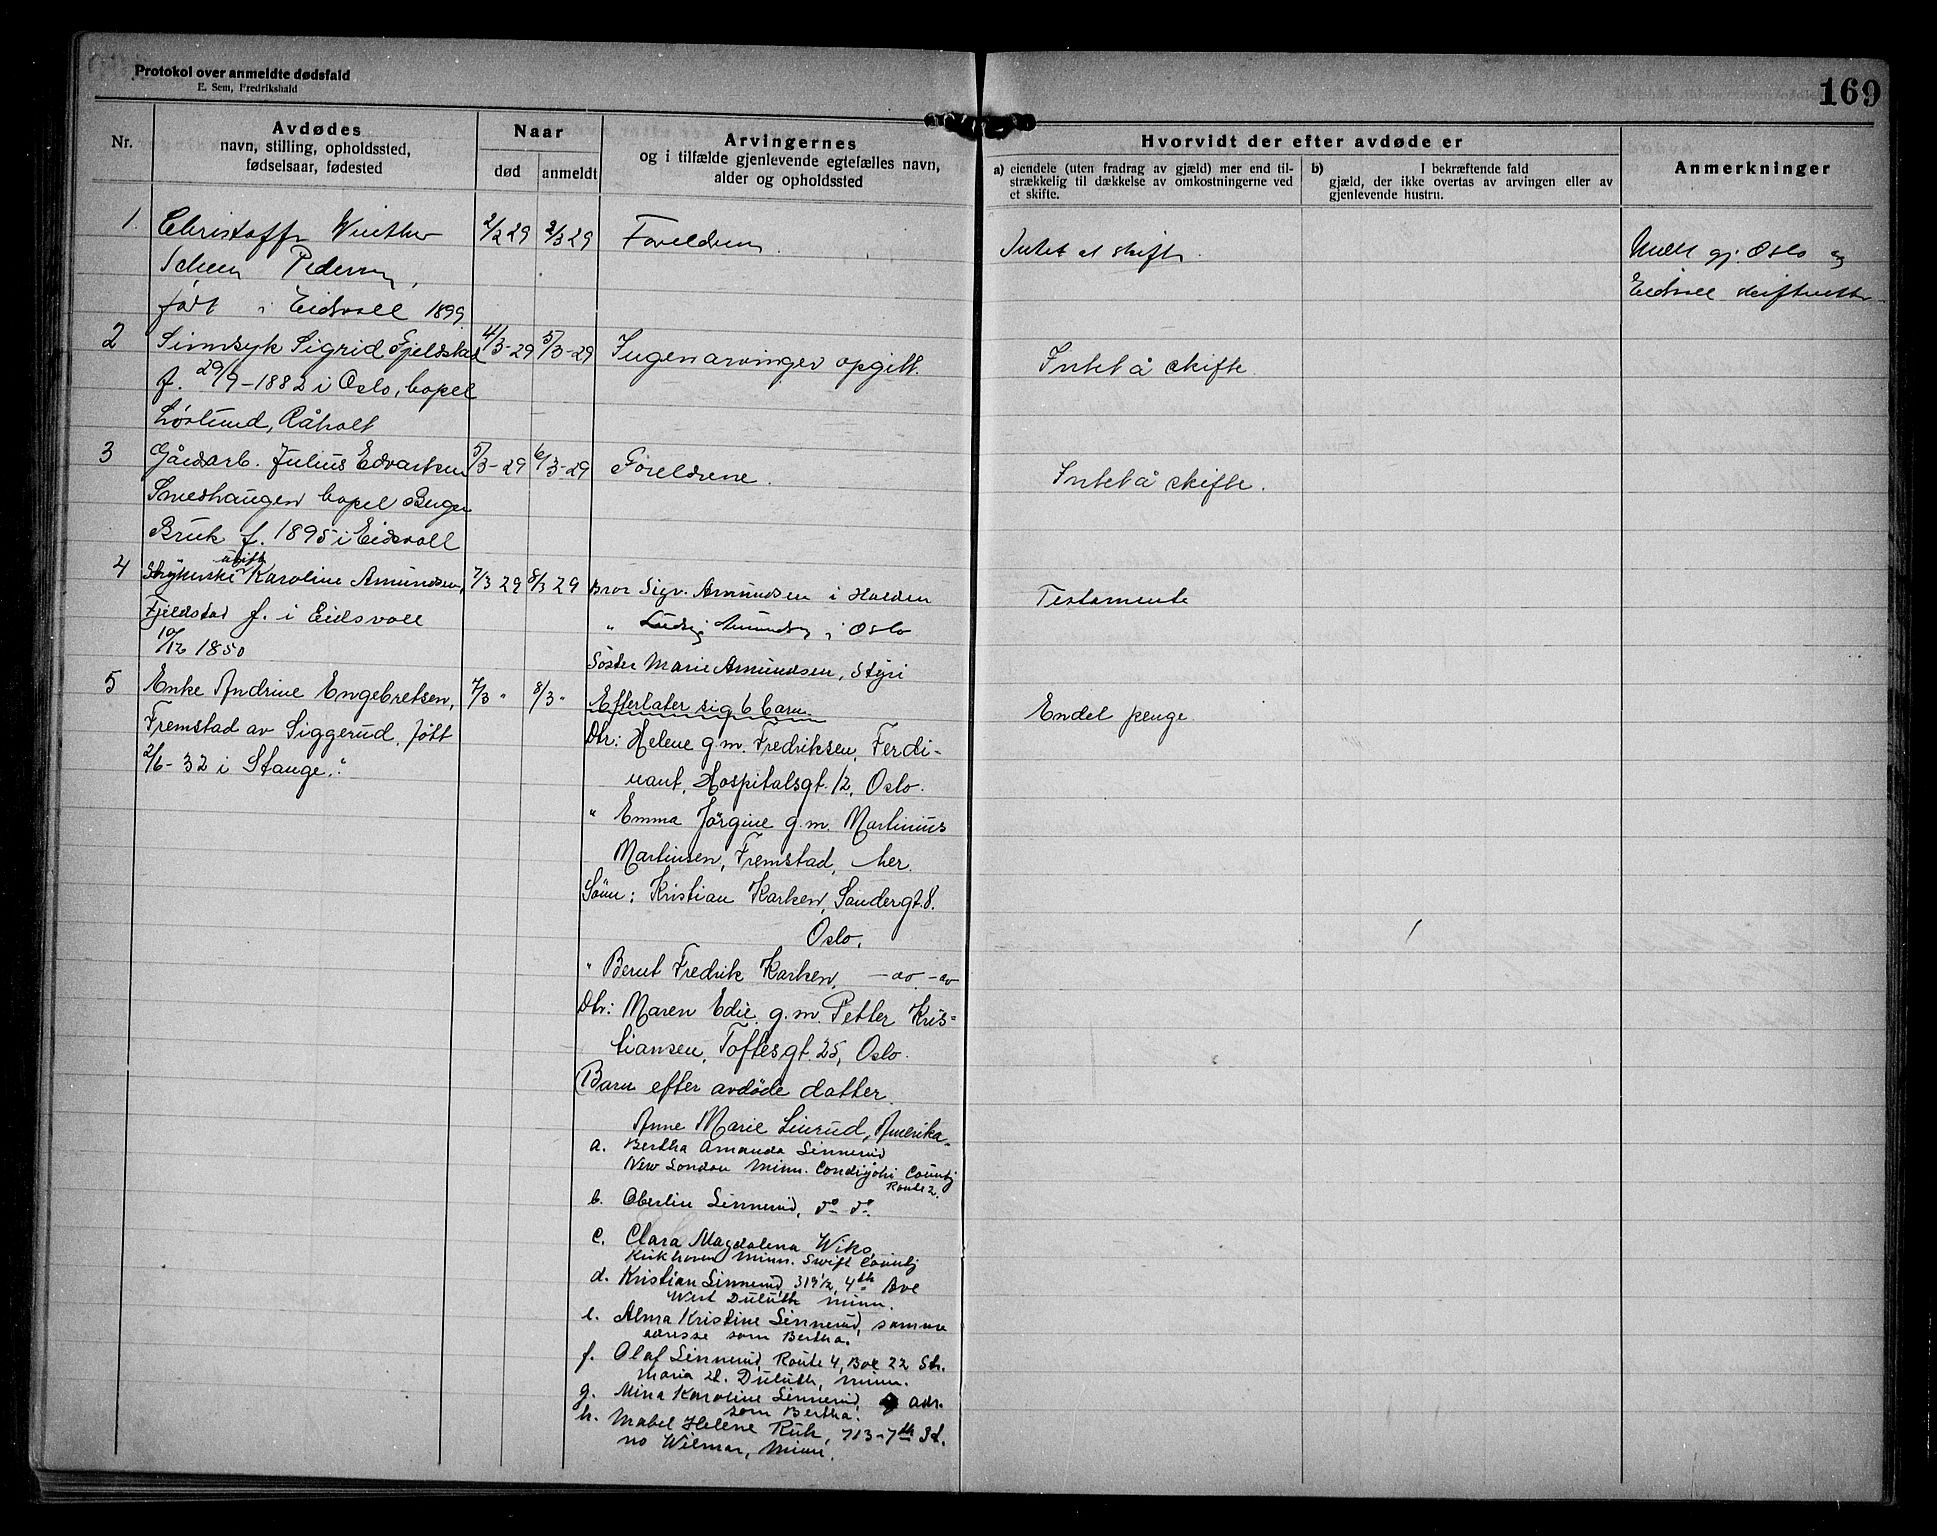 Protokol over anmeldte dødsfald
E. Sem, Fredrikshald
169
Nr.
Avdødes
navn, stilling, opholdssted,
fødselsaar, fødested
Naar
død
anmeldt
Arvingernes
og i tilfælde gjenlevende egtefælles navn,
alder og opholdssted
Hvorvidt der efter avdøde er
a) eiendele (uten fradrag av gjæld) mer end til-
strækkelig til dækkelse av omkostningerne ved
et skifte.
b) I bekræftende fald
gjæld, der ikke overtas av arvingen eller av
gjenlevende hustru.
Anmerkninger
1. Christoffer Winther 2/2 29 2/3 29 Foreldrene.
Pedersen,
født i Eidsvoll 1899
Intet at skifte.
Meldt gj. Oslo og
Eidsvoll skifterett
2 Sinnsyk Sigrid Fjeldstad 4/3-29 5/3-29 Ingen arvinger opgitt. Intet å skifte
f. 29/9-1882 i Oslo, bopel
Løslund, Råholt
3 Gårdarb. Julius Edvardsen 5/3-29 6/3-29 Foreldrene. Intet å skifte.
bopel
Bruk f. 1895 i Eidsvoll
4 ugift Karoline Amundsen, 7/3 29 8/3 29 Bror Sigv. Amundsen i Halden Testamente
Fjeldstad f. i Eidsvoll " Ludvig Amundsen i Oslo
10/12 1850 Søster Marie Amundsen, Styri
5 Enke Andrine Engebretsen, 7/3 " 8/3 " Efterlater sig 6 barn. Endel penge.
Fremstad av Siggerud, født
2/6-32 i Stange.
Dtr: Helene g.m. Fredriksen, Ferdi-
nant, Hospitalsgt. 12, Oslo.
" Emma Jørgine g.m. Martinius
Martinsen, Fremstad, her.
Sønn: Kristian Karlsen, Sandergt. 8.
Oslo.
" Bernt Fredrik Karlsen, -ao.-ao
Dtr: Maren Edie g.m. Petter Kris-
tiansen, Toftesgt. 25, Oslo.
Barn efter avdøde datter.
Anne Marie Linrud, Amerika.
a. Bertha Amanda Linnerud
New London Minn. County
Route 2.
b. Oberlin Linnerud, do do.
c. Clara Magdalena Wiks,
Kirkhoven Minn. Swift County
d. Kristian Linnerud, 319 1/2, 4th Ave
West Duluth Minn.
e. Alma Kristine Linnerud, samme
adresse som Bertha.
f. Olaf Linnerud, Route 4, Box 22 St.
Maria St. Duluth, Minn.
g. Mina Karoline Linnerud, adr.
som Bertha.
h. Mabel Helene Ruh, 713-7th St.
no Wilmar, Minn.